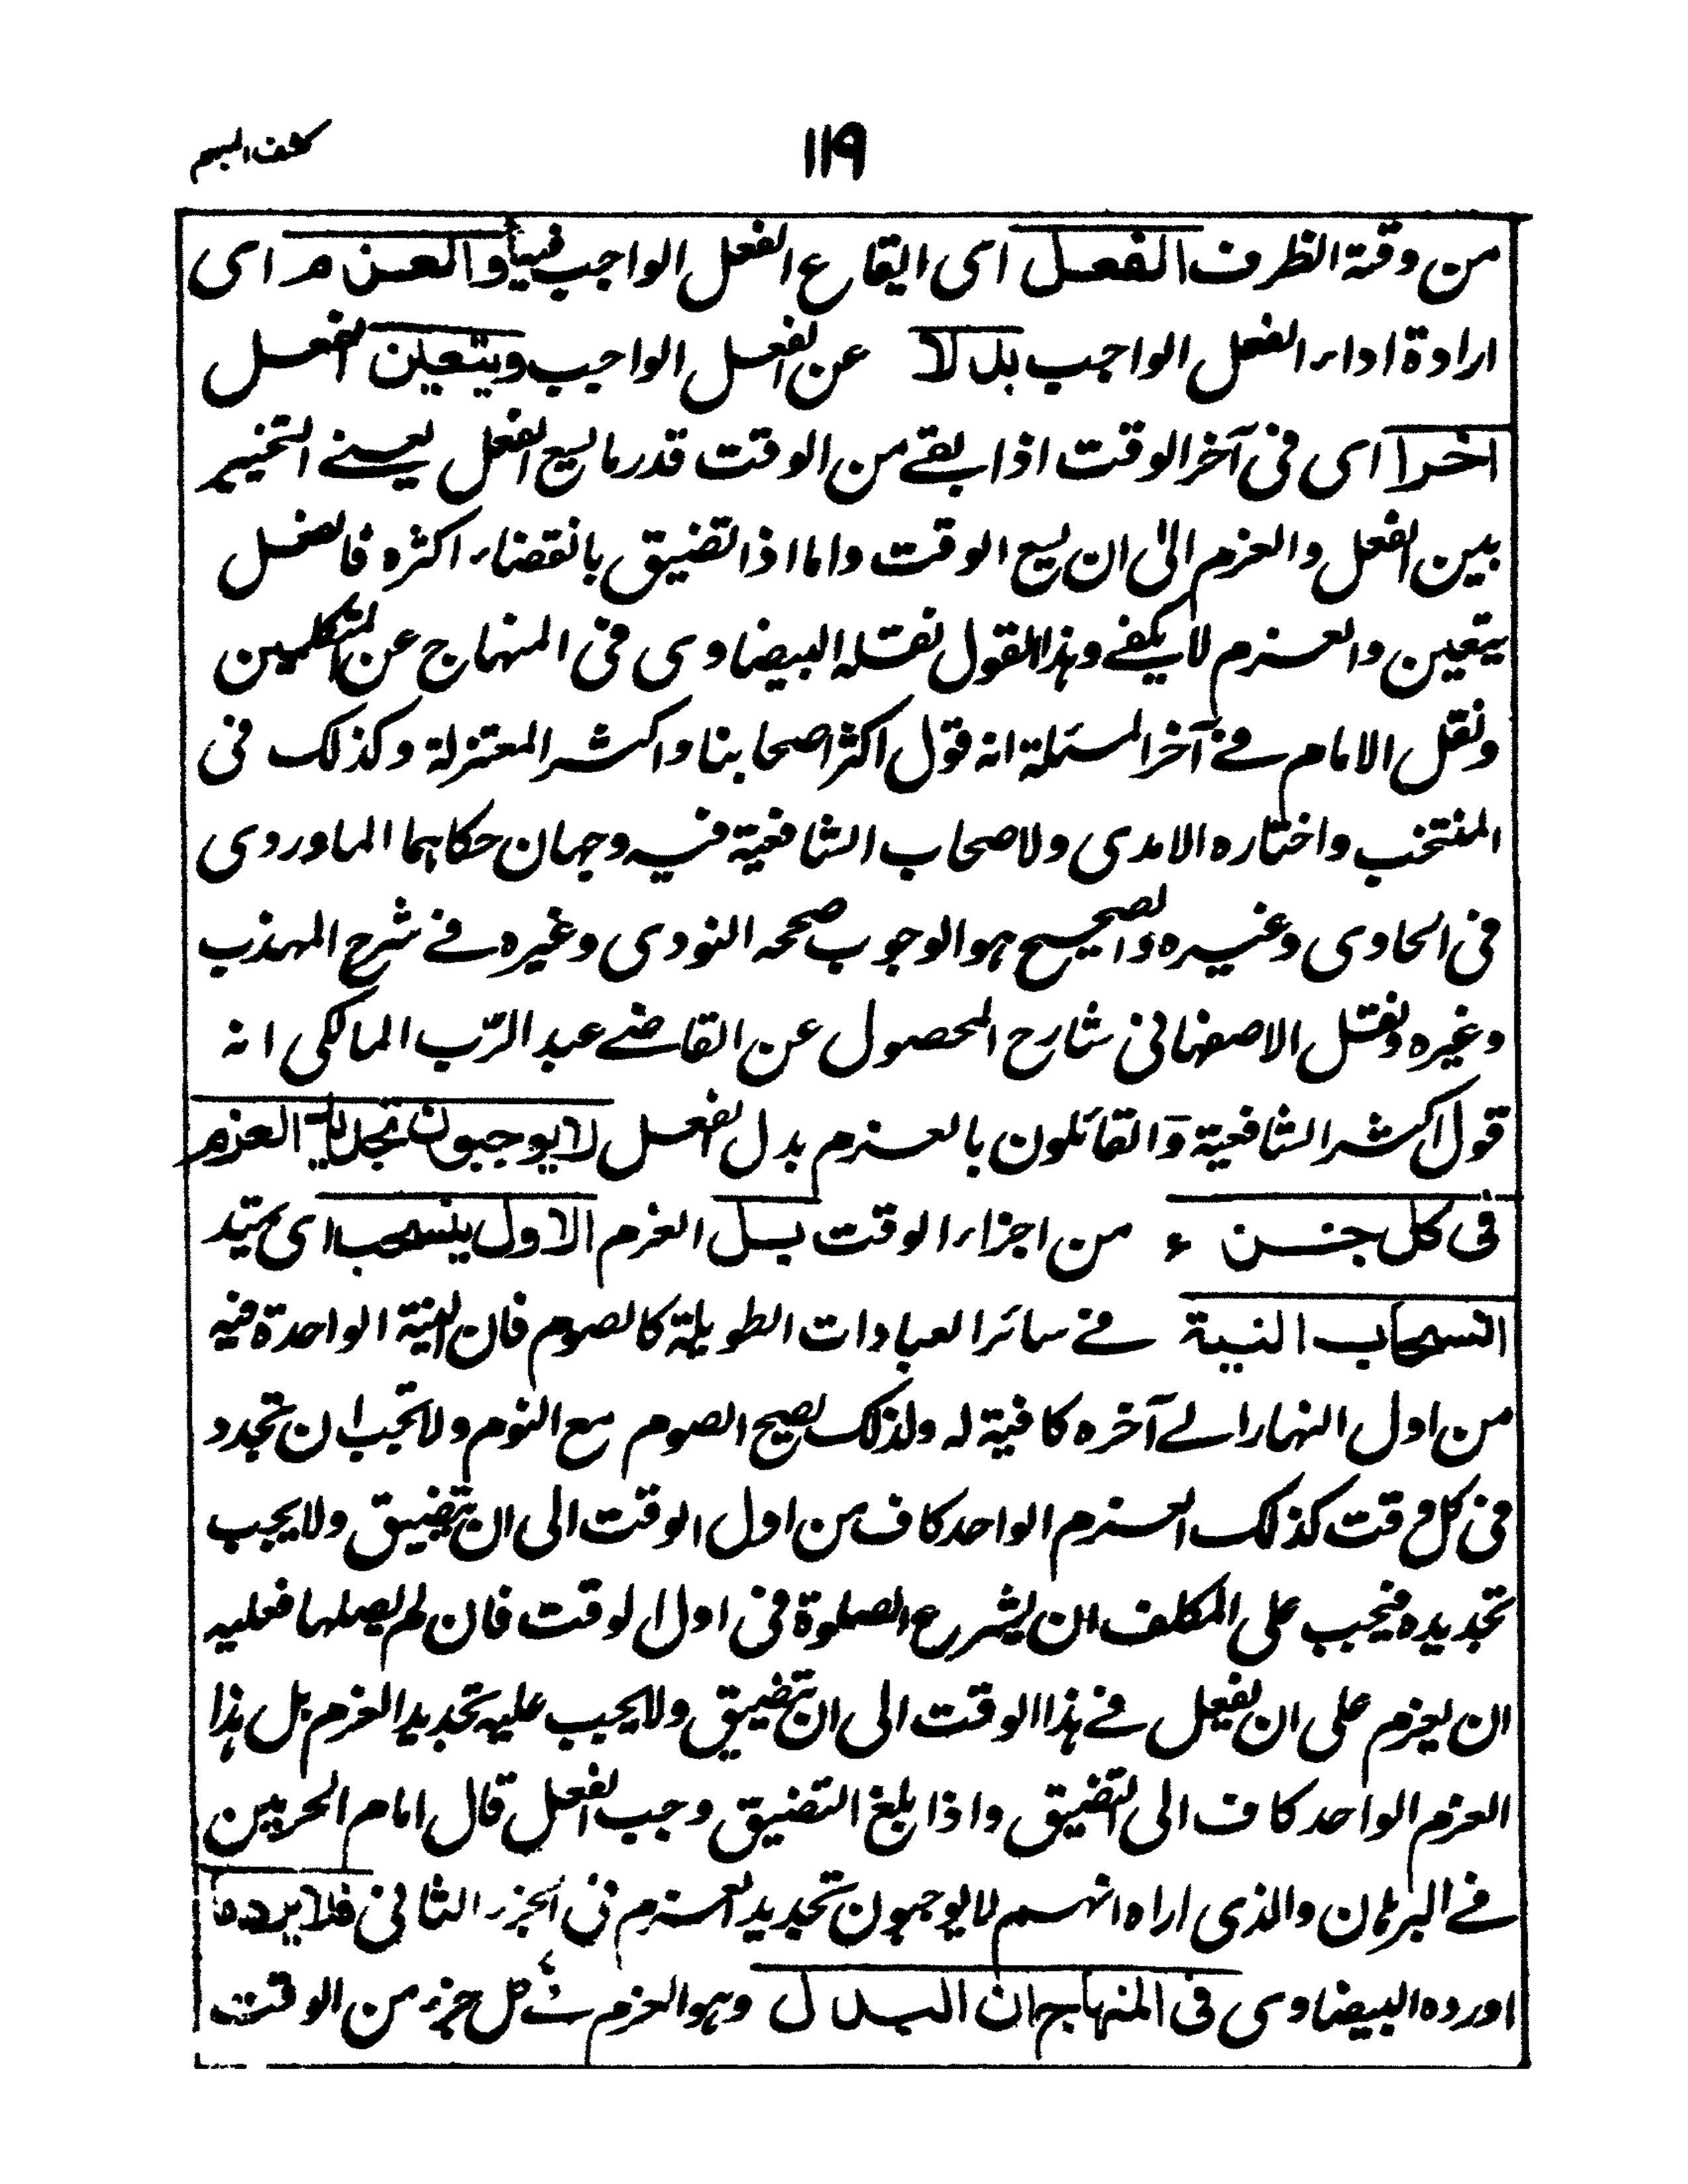 كشف المبهم
١١٩
من وقتة الظرف الفعل اى ايقاع الفعل الواجب فيها والعزم اى
ارادة اداء الفعل الواجب بدلا عن الفعل الواجب ويتعين الفعل
اخرا اى فى آخر الوقت اذا بقے من الوقت قدر ما يسع الفعل يعنے التخيير
بين الفعل والعزم الىٰ ان يسع الوقت واما اذا تضيق بانقضاء اكثره فالفعل
يتعين والعزم لا يكفے وهذا القول نقله البيضاوى فى المنهاج عن المتكلمين
ونقل الامام فے آخر المسئلة انه قول اكثر اصحابنا واكثر المعتزلة وكذلك فى
المنتخب واختاره الامدى ولاصحاب الشافعية فيه وجهان حكاهما الماوردى
فى الحاوى وغيره والصحيح هو الوجوب صححه النووى وغيره فے شرح المهذب
وغيره ونقل الاصفهانى شارح المحصول عن القاضے عبد الرّب المالكى انه
قول اكثر الشافعية وَالقائلون بالعزم بدل الفعل لا يوجبون تجديد العزم
فى كل جزء من اجزاء الوقت بل العزم الاول ينسحب اى يمتد
انسحاب النية فے سائر العبادات الطويلة كالصوم فان النية الواحدة فيه
من اول النهار الے آخره كافية له ولذلك يصح الصوم مع النوم ولا تجب ان تجدد
فى كل وقت كذلك العزم الواحد كاف من اول الوقت الى ان يتضيق ولا يجب
تجديده فيجب على المكلف ان يشرع الصلوة فى اول الوقت فان لم يصلها فعليه
ان يعزم على ان يفعل فے هذا الوقت الى ان يتضيق ولا يجب عليه تجديد العزم بل هذا
العزم الواحد كاف الى التضيق واذا بلغ التضيق وجب الفعل قال امام الحرمين
فے البرهان والذى اراه انهم لا يوجبون تجديد العزم فى الجزء الثانى فلا يرد ما
اورده البيضاوى فى المنهاج ان البدل وهو العزم فے كل جزء من الوقت